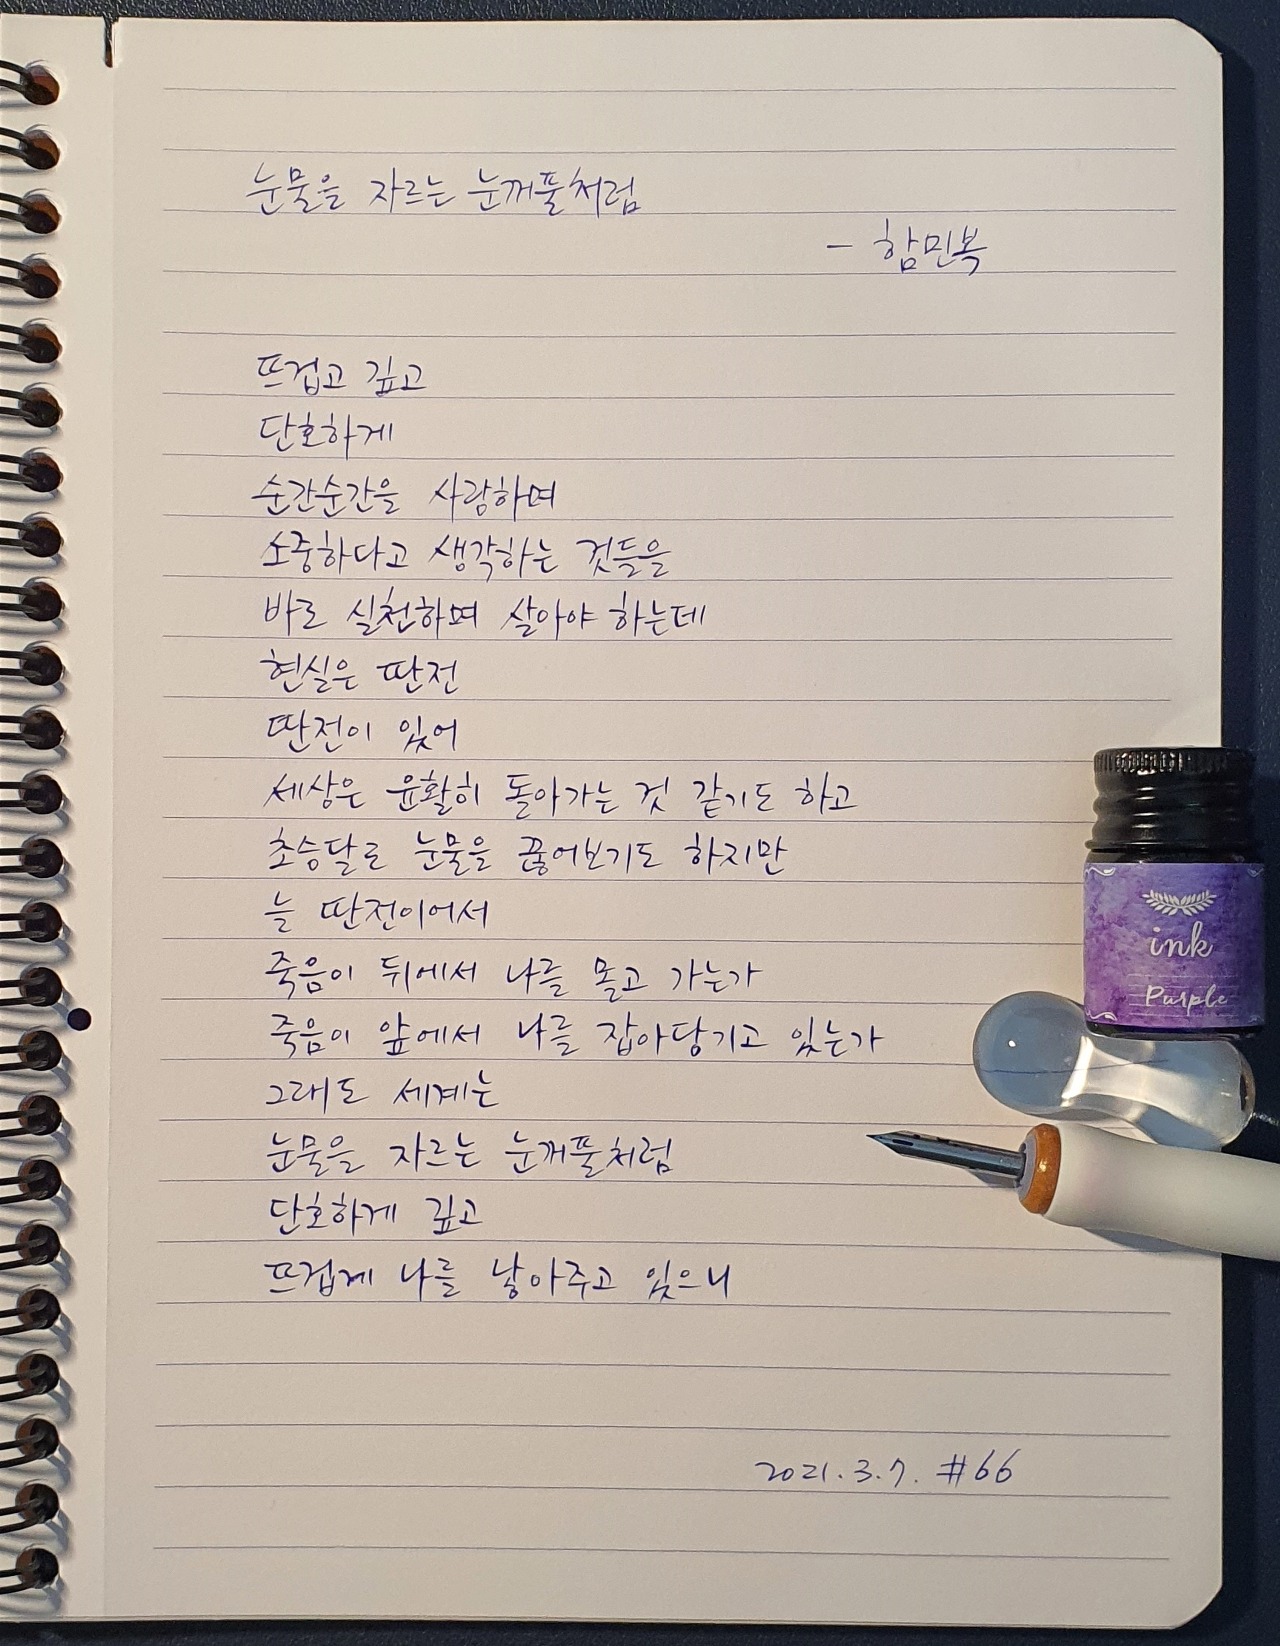 눈물을 자르는 눈꺼풀처럼
- 함민복
뜨겁고 깊고
단호하게
순간순간을 사랑하며
소중하다고 생각하는 것들을
바로 실천하며 살아야 하는데
현실은 딴전
딴전이 있어
세상은 윤활히 돌아가는 것 같기도 하고
초승달로 눈물을 끊어보기도 하지만
늘 딴전이어서
죽음이 뒤에서 나를 몰고 가는가
죽음이 앞에서 나를 잡아당기고 있는가
그래도 세계는
눈물을 자르는 눈꺼풀처럼
단호하게 깊고
뜨겁게 나를 낳아주고 있으니
2021.3.7. #66
ink
Purple